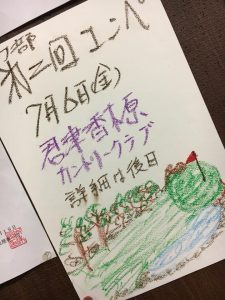 第二回コンペ
7月6日(金)
君津香木原
カントリークラブ
詳細は後日